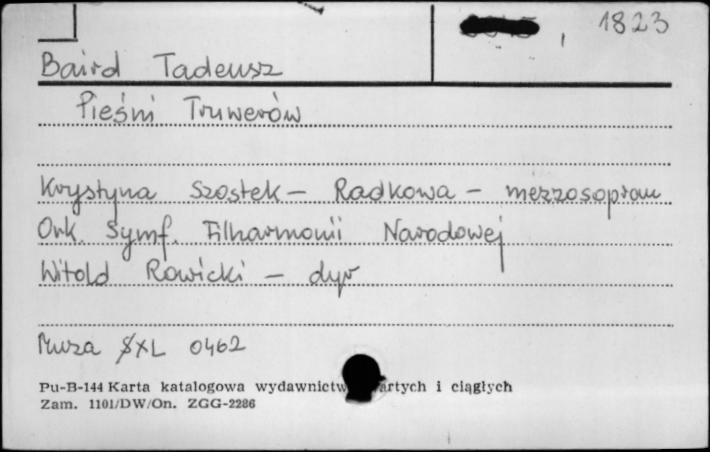 1823
Baird Tadeusz
Pieśni Truwerów
Krystyna Szostek – Radkowa – mezzosopran
Ork. Symf. Filharmonii Narodowej
Witold Rowicki – dyr
Muza SXL 0462
Pu-B-144 Karta katalogowa wydawnictw artych i ciągłych
Zam. 1101/DW/On. ZGG-2286